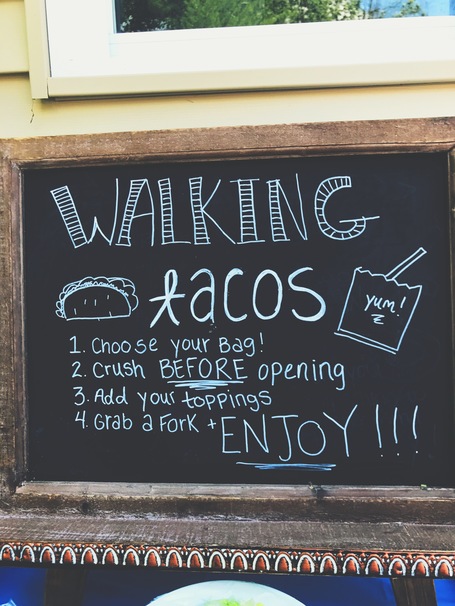 WALKING
tacos
yum!
1. Choose your Bag!
2. Crush BEFORE opening
3. Add your toppings
4. Grab a Fork + ENJOY!!!